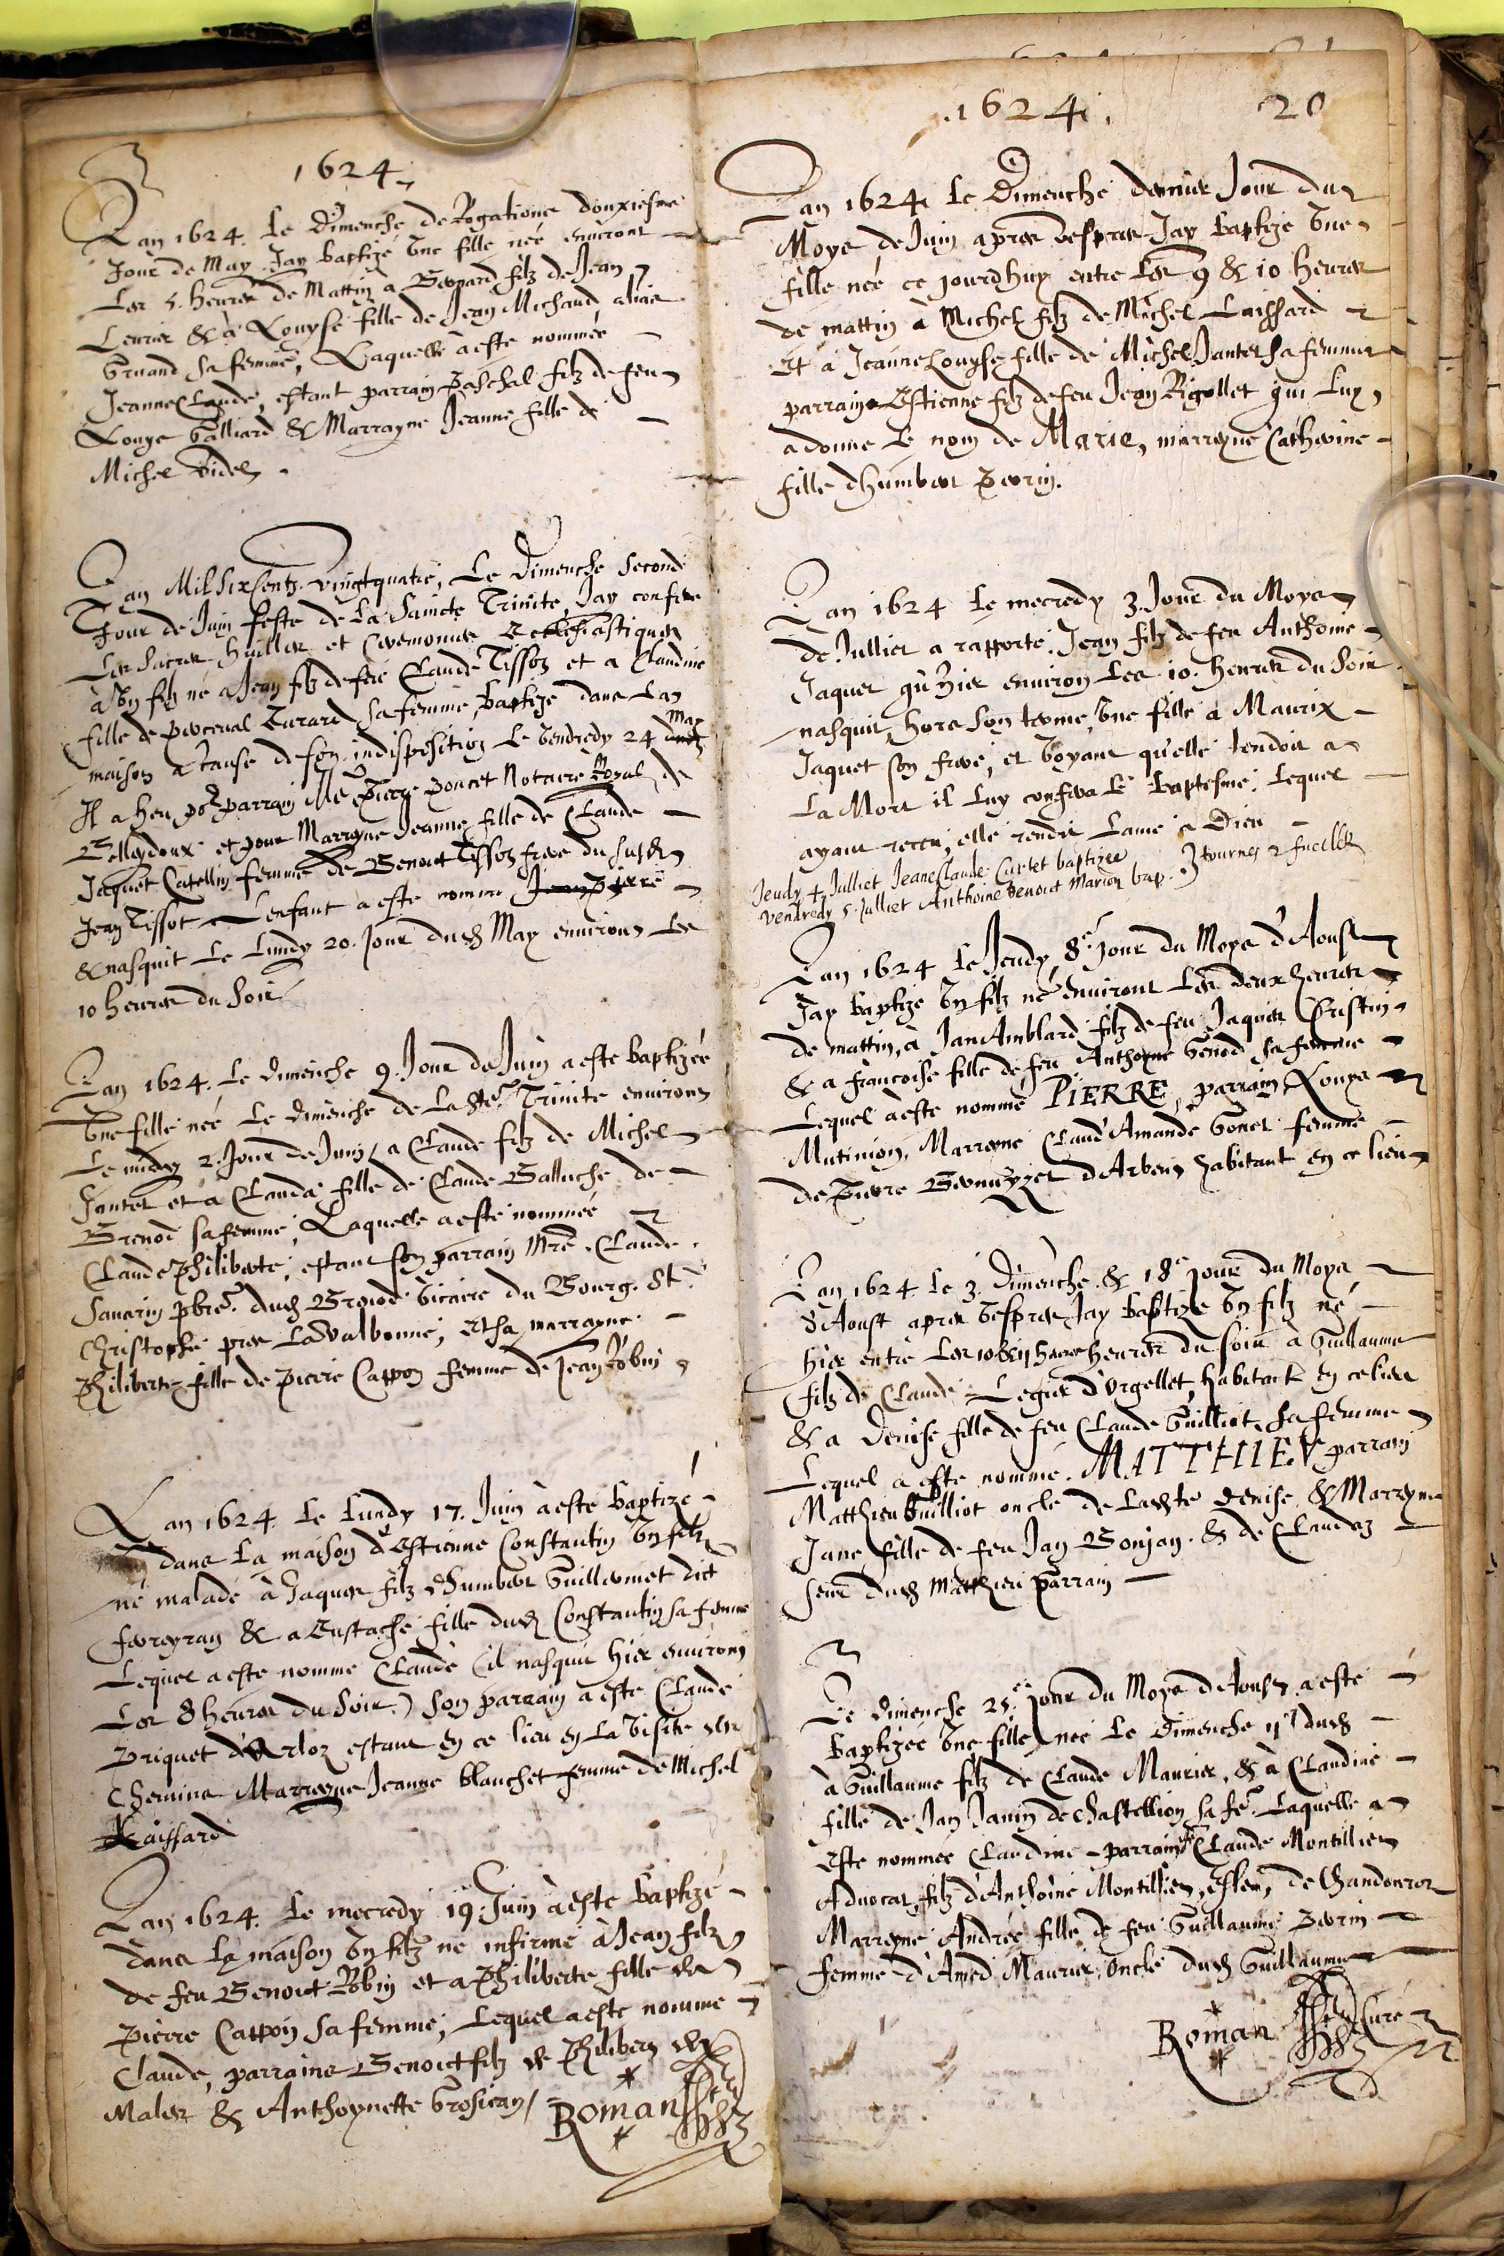 1624
Lan 1624. Le Dimenche de Rogations douxiesme
Jour de May Jay baptizé une fille née environt
Les 5. heures de Mattin a Bernard filz de Jean
Levrier & à Louyse fille de Jean Michaud alias
Gruand sa femme, Laquelle à esté nommée
Jeanne Claude, estant parrain Paschal filz de feu
Louys Galliard & Marrayne Jeanne fille de
Michel Videl
Lan Mil Six Centz vingtquatre, Le Dimenche second
Jour de Juin feste de La Saincte Trinité, Jay conferé
Les Sacrés huilles et Ceremonies Ecclesiastiques
à Un filz né a Jean filz de feu Claude Tissot et a Claudine
fille de Perceval Turard sa femme, baptizé dans La
maison à cause de son indisposition Le Vendredy 24 May
Il a heu por parrain Me Pierre Poncet Notaire Royal de
Belleydoux et pour Marrayne Jeanne fille de Claude
Jaquet Catellin femme de Benoict Tissot frere du susd
Jean Tissot Lenfant a esté nommé Jean Pierre
& nasquit Le Lundy 20. jour dud May environ Les
10 heures du Soir
Lan 1624. Le Dimenche 9. Jour de Juin a esté baptizée
Une fille née Le Dimenche de La Ste Trinité environ
Le midy 2. Jour de Juin, a Claude filz de Michel
Jantet et a Clauda fille de Claude Balluche de
Brenod sa femme, Laquelle a esté nommée
Claude Philiberte, estant son parrain Mre Claude
Savarin pbre dud Brenod Vicaire du Bourg St
Christophe pres La Valbonne, Et sa marrayne
Philiberte fille de Pierre Cappon femme de Jean Robin
Lan 1624. Le Lundy 17. Juin à esté baptizé
dans La maison d'Estienne Constantin Un filz
né malade à Jaques filz d'Humbert Guillermet dict
fevreyran & a Eustache fille dud Constantin sa femme
Lequel a esté nommé Claude (il nasquit hier environ
Les 8 heures du Soir.) Son parrain a esté Claude
Briquet d'Arloz estant en ce lieu en La Visite des
Chemins Marrayne Jeanne blanchet femme de Michel
Laissard
Lan 1624. Le mecredy 19. Juin à esté baptizé
dans La maison Un filz né infirme à Jean filz
de feu Benoict Robin et a Philiberte fille de
Pierre Cappon sa femme, Lequel a esté nommé
Claude, parrains Benoict filz de Philibert
Males & Anthoynette Grosiean
Roman
.1624. 20
Lan 1624 Le Dimenche dernier Jour du
Moys de Juin apres Vespres Jay baptizé Une
fille née ce jourdhuy entre Les 9 & 10 heures
de mattin à Michel filz de Michel Laissard
Et à Jeanne Louyse fille de Michel Jantet sa femme
parrain Estienne filz de feu Jean Rigollet qui Luy
a donné Le nom de Marie, marreyne Catherine
fille d'humbert Perrin.
Lan 1624 Le mecredy 3. Jour du Moys
de Jullier a rapporté Jean filz de feu Anthoine
Jaquet qu'hier environ Les 10. heures du Soir
nasquit hors son terme, Une fille a Maurix
Jaquet son frere, et Voyant qu'elle tendoit a
La Mort il Luy confera Le Baptesme. Lequel
ayant receu, elle rendit Lame a Dieu
Jeudy 4 Julliet Jeane Claude Curtet baptizee
Vendredy 5. Julliet Anthoine Benoict Marion bap. } tournes 2 fuelles
Lan 1624 Le Jeudy 8e Jour du Moys d'Aoust
Jay baptizé Un filz né environt Les deux heures
de mattin, à Jan Amblard filz de feu Jaques Cristin
& a francoise fille de feu Anthoyne Genod sa femme
Lequel à esté nommé PIERRE, parrain Louys
Mutinion, Marreyne Claud'Amande Gonet femme
de Pierre d'Arbent habitant en ce lieu
Lan 1624 Le 3. Dimenche & 18e jour du Moys
d'Aoust apres Vespres Jay baptizé Un filz né
hier entre Les 10 & 11 heures du soir à Guillaume
filz de Claude Legier d'Orgellet habitant en ce lieu
& a Denise fille de feu Claude Guilliot, sa femme
Lequel a esté nommé. MATTHIEV parrain
Matthieu Guilliot oncle de Ladite Denise & Marreyne
Jane fille de feu Jan Bonjan & de Claudaz
seur dud Matthieu Parrain
Le Dimenche 25.e jour du Moys d'Aoust a esté
baptizée Une fille née Le Dimenche 11e dud
à Guillaume filz de Claude Maurier, & à Claudine
fille de Jan Janin de Chastellion sa fe. Laquelle a
esté nommée Claudine parrain Claude Montillier
Advocat, filz d'Anthoine Montillier, esleu, de Chandorrer
Marreyne Andrée fille de feu Guillaume Perrin
femme d'Amed Maurier, Oncle dud Guillaume
Roman Curé